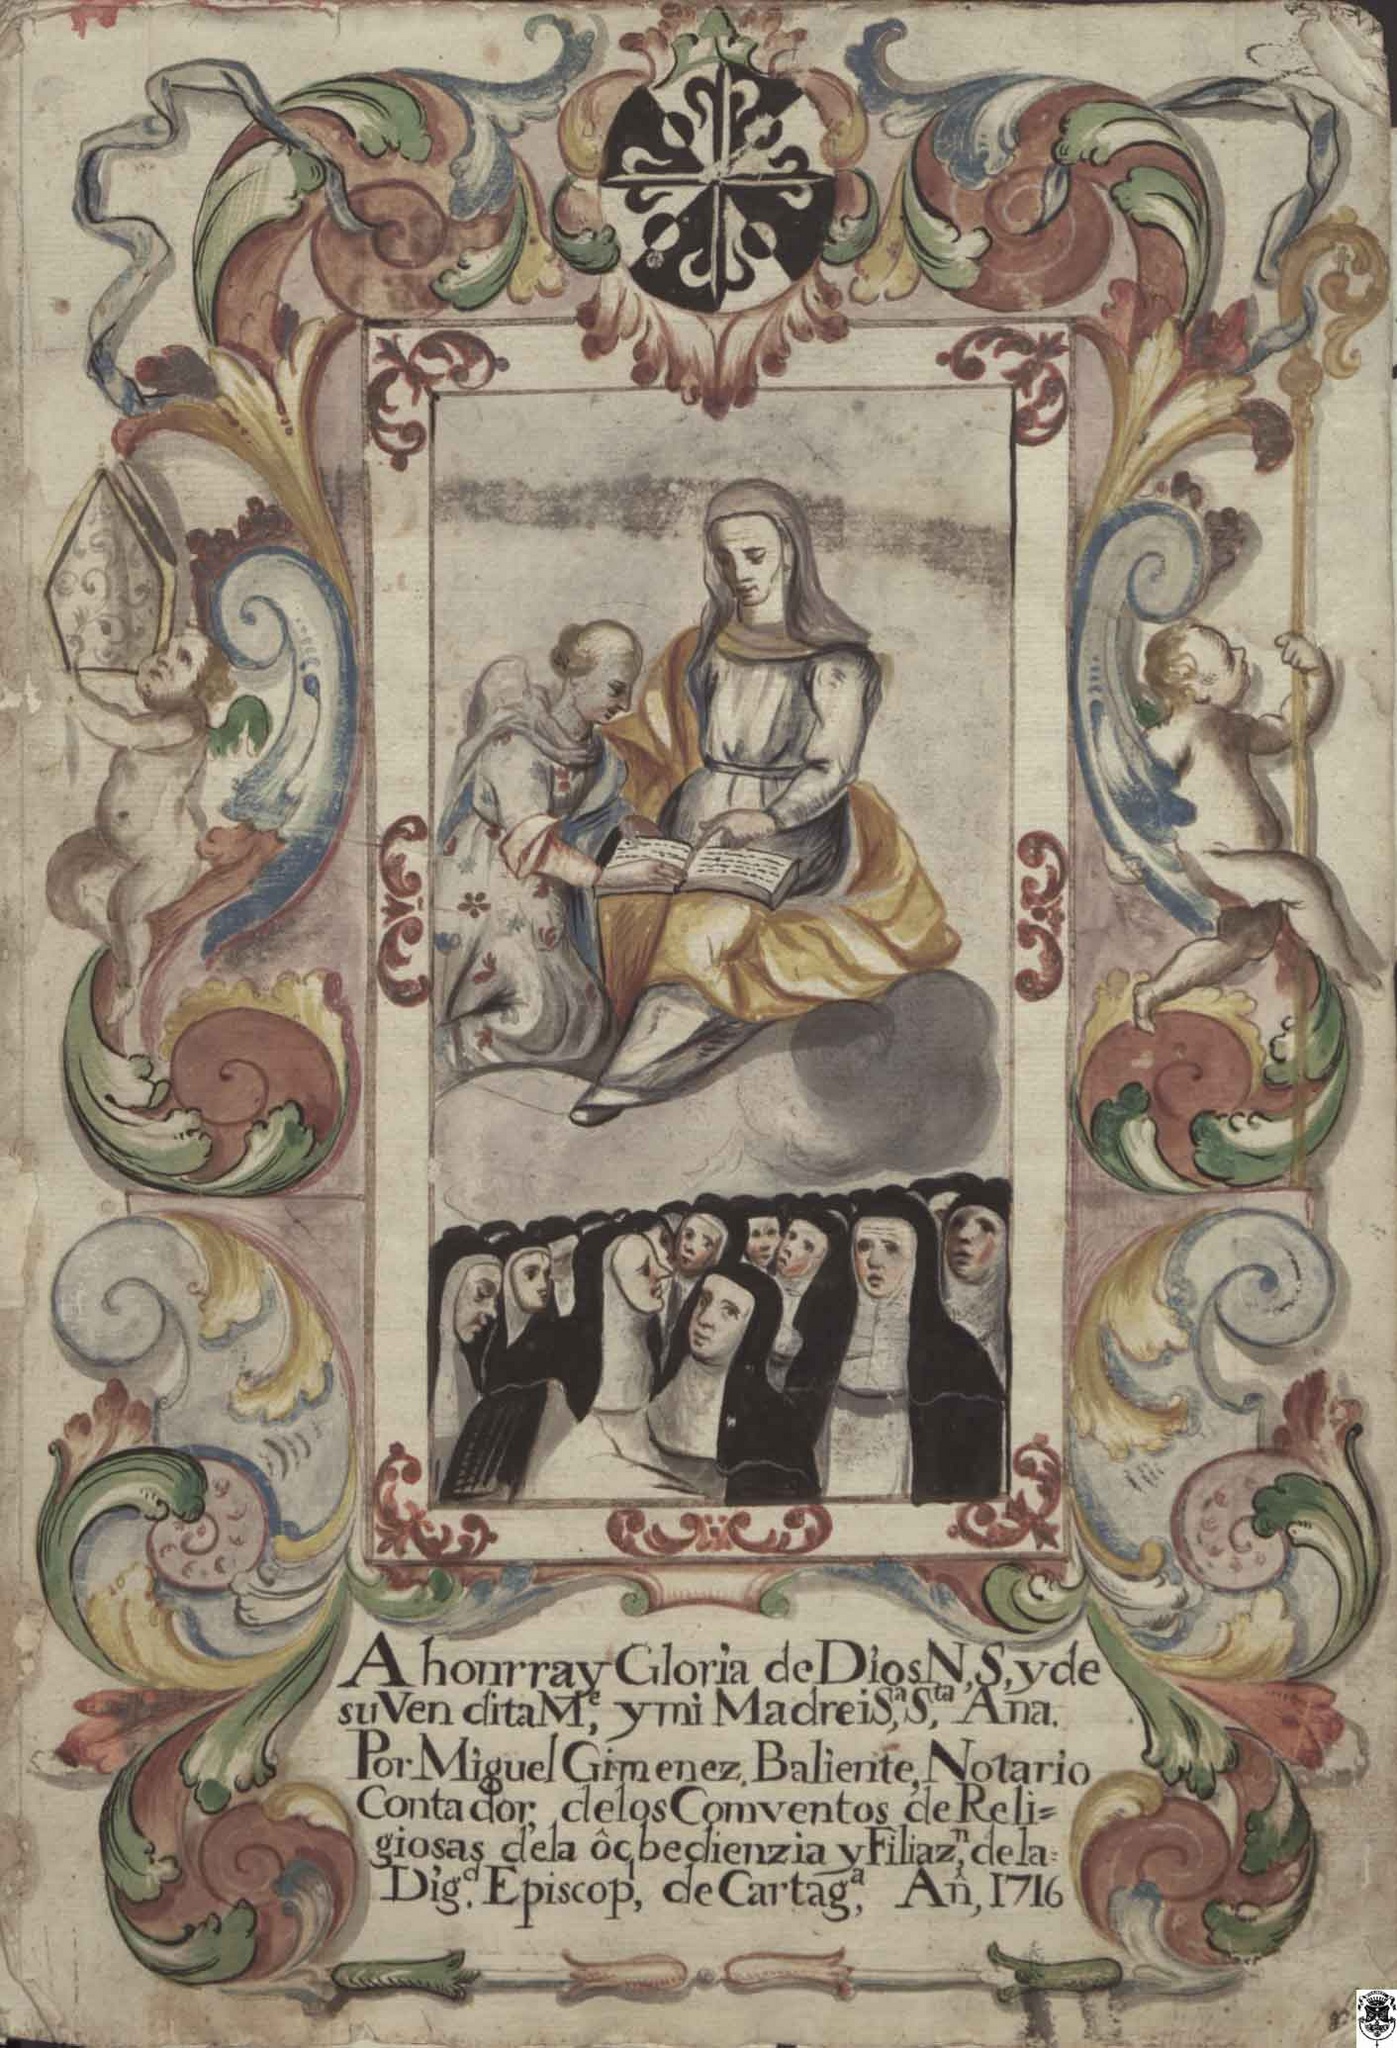 A honrray Gloria de Dios N, S, y de
su Ven dita Mᵉ, y mi Madre i Sᵃ, Sᵗᵃ Ana.
Por Miguel Gimenez, Baliente, Notario
Contador, de los Comventos de Reli=
giosas de la ôcbedienzia y Filiazⁿ, de la=
Digᵈ. Episcopˡ, de Cartagᵃ, Añ, 1716